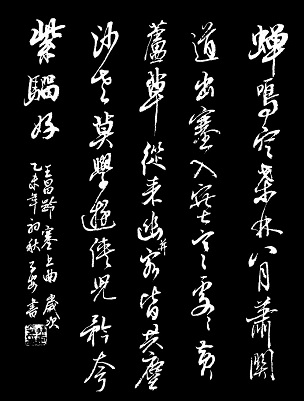 蟬鳴空桑林八月蕭關
道出塞入塞寒處々黃
蘆草從來幽并客皆共塵
沙老莫學遊俠兒矜夸
紫騮好
王昌齡塞上曲歲次
乙未年初秋 書